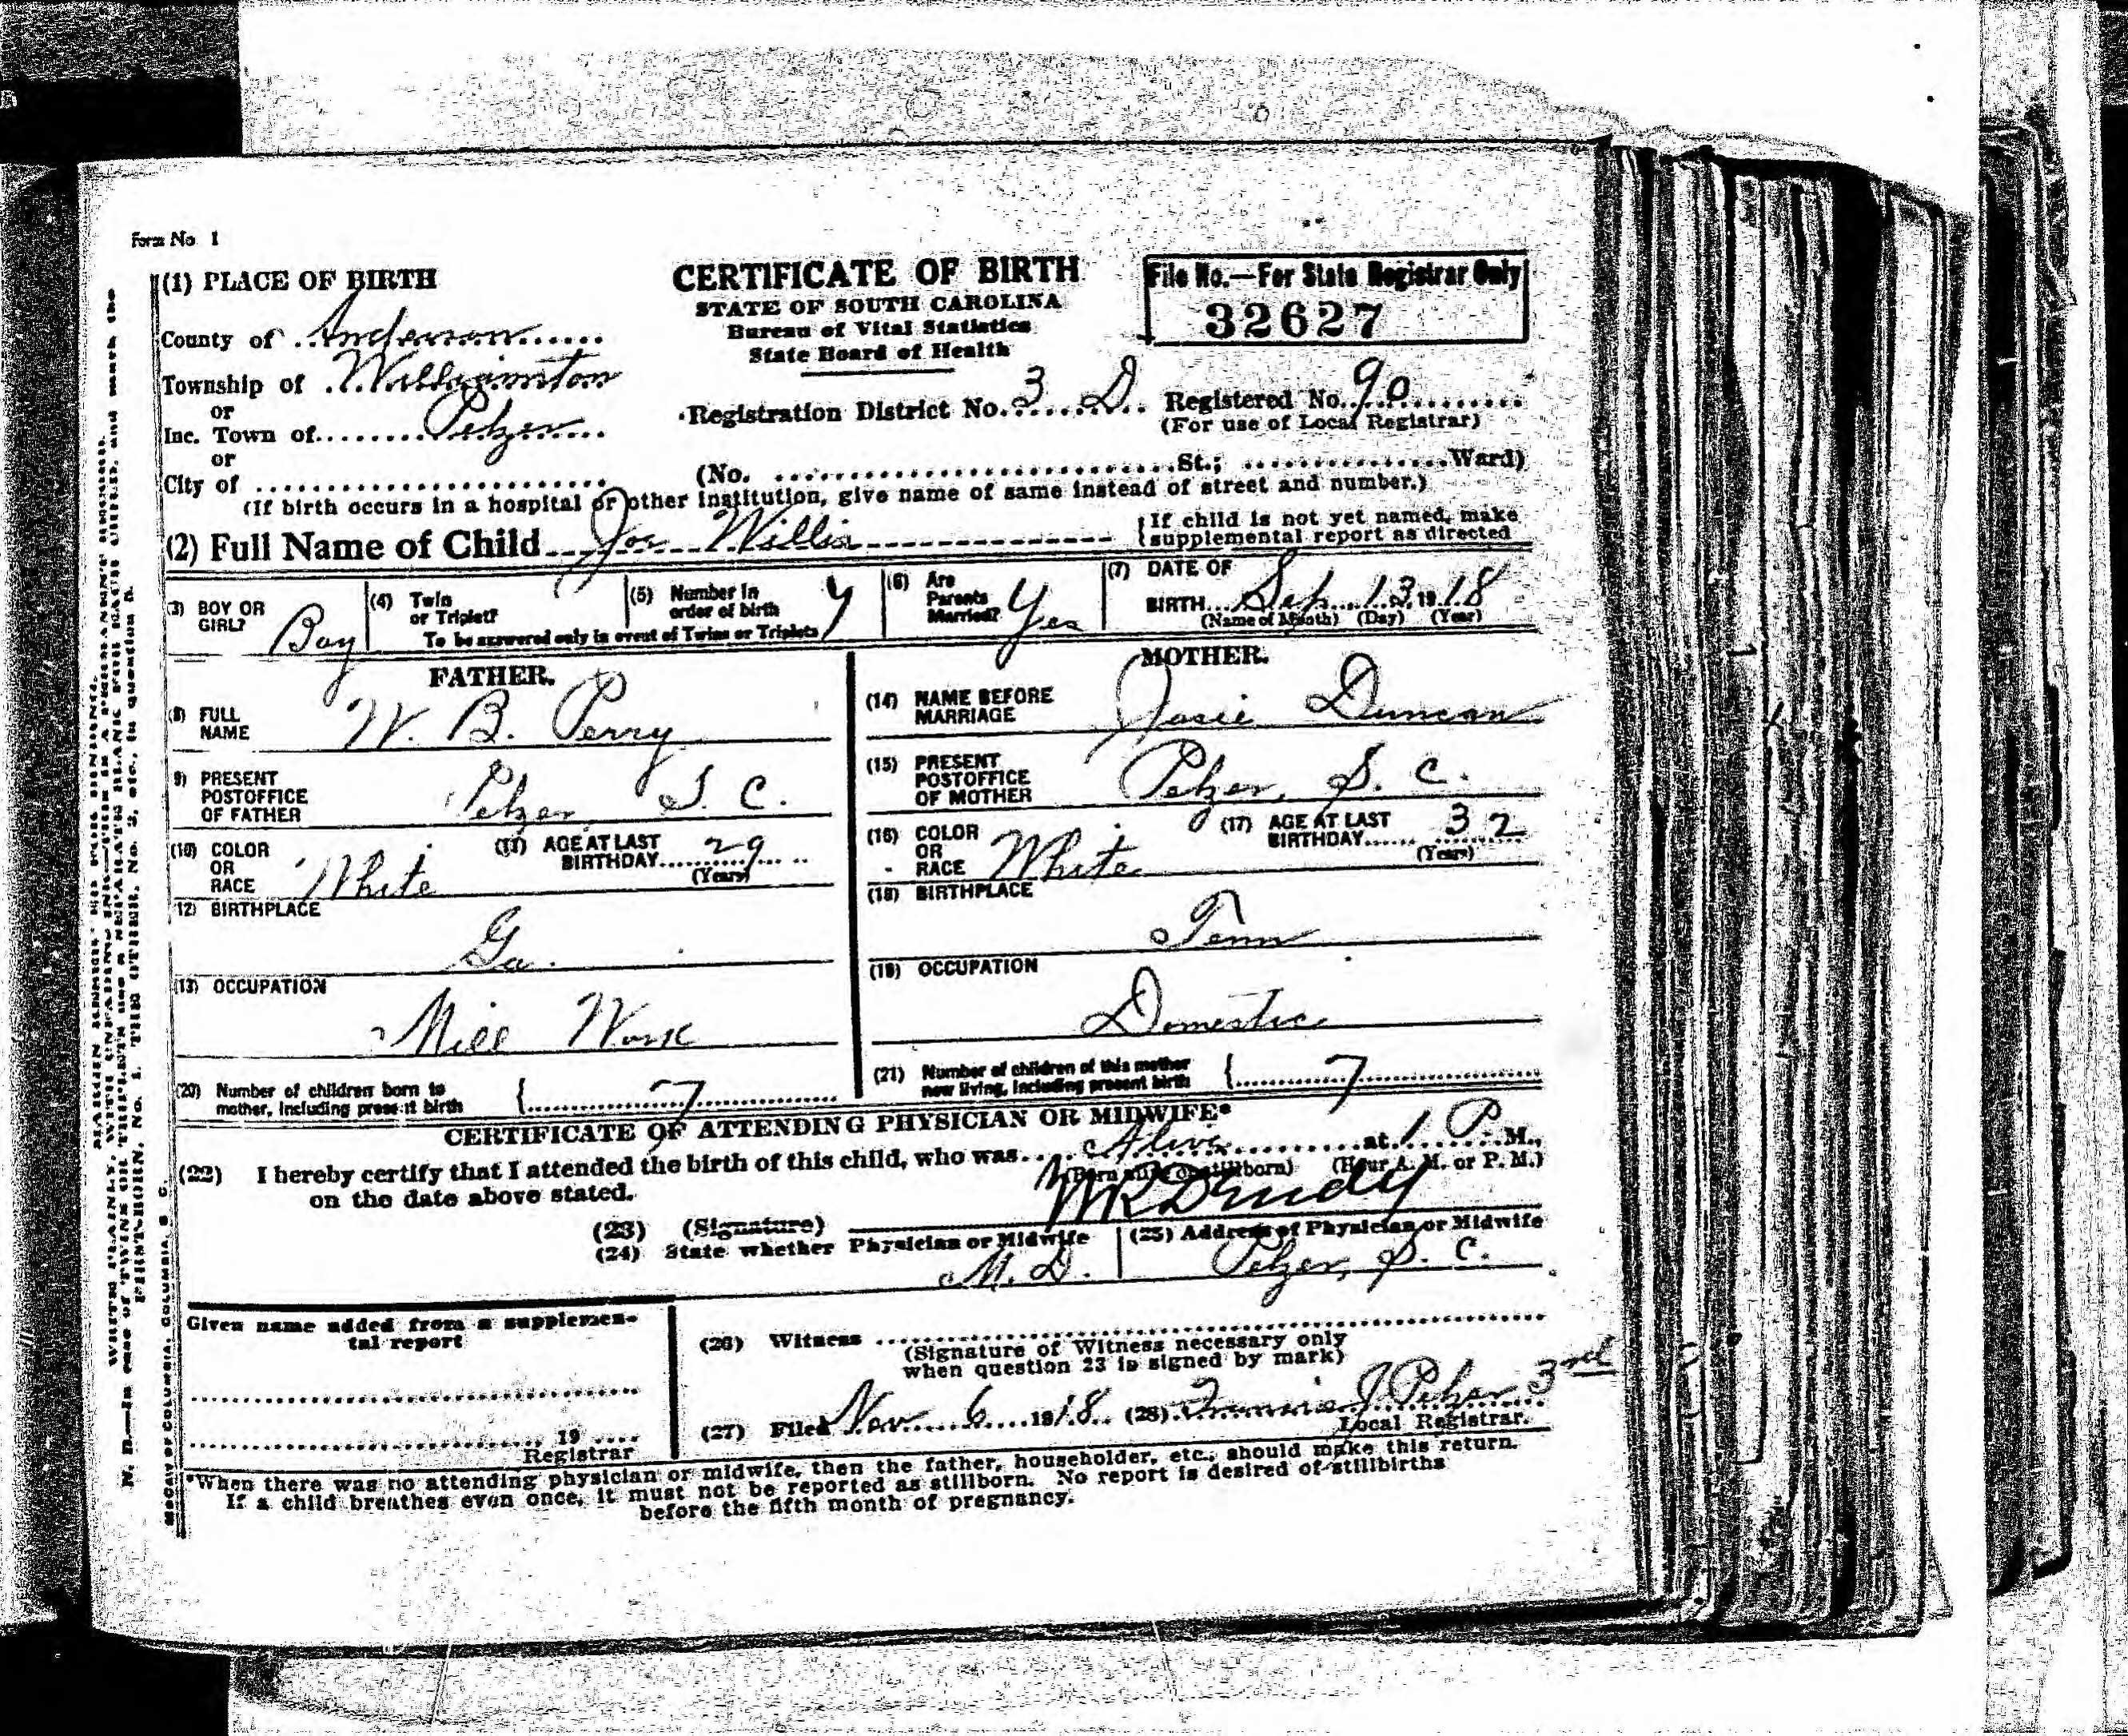 Form No 1
(1) PLACE OF BIRTH
County of Anderson
Township of Williamston
or
Inc. Town of Pelzer
or
City of
CERTIFICATE OF BIRTH
STATE OF SOUTH CAROLINA
Bureau of Vital Statistics
State Board of Health
File No.—For State Registrar Only
32627
Registration District No. 3 D Registered No. 90
(For use of Local Registrar)
(No. St.; Ward)
(If birth occurs in a hospital or other institution, give name of same instead of street and number.)
(2) Full Name of Child Joe Willis
If child is not yet named, make
supplemental report as directed
(3) BOY OR GIRL? Boy
(4) Twin or Triplet?
(5) Number in order of birth
To be answered only in event of Twins or Triplets
(6) Are Parents Married? Yes
(7) DATE OF BIRTH Sep. 13, 1918
(Name of Month) (Day) (Year)
FATHER.
(8) FULL NAME W. B. Perry
9) PRESENT POSTOFFICE OF FATHER Pelzer S. C.
(10) COLOR OR RACE White
(11) AGE AT LAST BIRTHDAY 29
(Years)
12) BIRTHPLACE
Ga.
(13) OCCUPATION
Mill Work
MOTHER.
(14) NAME BEFORE MARRIAGE Josie Duncan
(15) PRESENT POSTOFFICE OF MOTHER Pelzer, S. C.
(16) COLOR OR RACE White
(17) AGE AT LAST BIRTHDAY 32
(Years)
(18) BIRTHPLACE
Tenn
(19) OCCUPATION
Domestic
(20) Number of children born to mother, including present birth 7
(21) Number of children of this mother now living, including present birth 7
CERTIFICATE OF ATTENDING PHYSICIAN OR MIDWIFE*
(22) I hereby certify that I attended the birth of this child, who was Alive at 1 P. M.,
(Born alive or stillborn) (Hour A. M. or P. M.)
on the date above stated.
(23) (Signature)
(24) State whether Physician or Midwife M. D.
(25) Address of Physician or Midwife
Pelzer, S. C.
Given name added from a supplemen-
tal report
19
Registrar
(26) Witness
(Signature of Witness necessary only
when question 23 is signed by mark)
(27) Filed Nov. 6 1918 (28) J Pelzer 3rd
Local Registrar.
*When there was no attending physician or midwife, then the father, householder, etc., should make this return.
If a child breathes even once, it must not be reported as stillborn. No report is desired of stillbirths
before the fifth month of pregnancy.